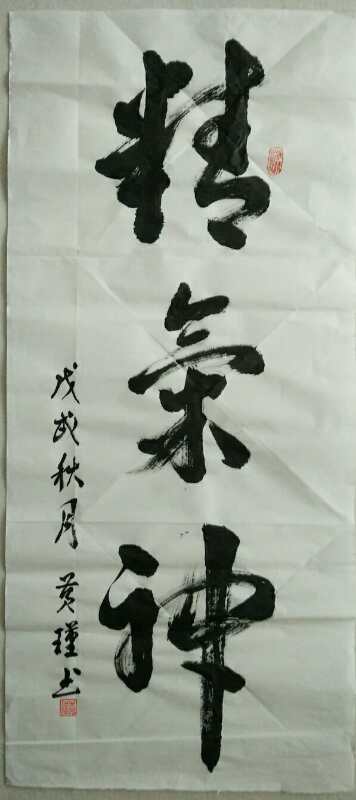 精氣神
戊戌秋月 黄瑾书